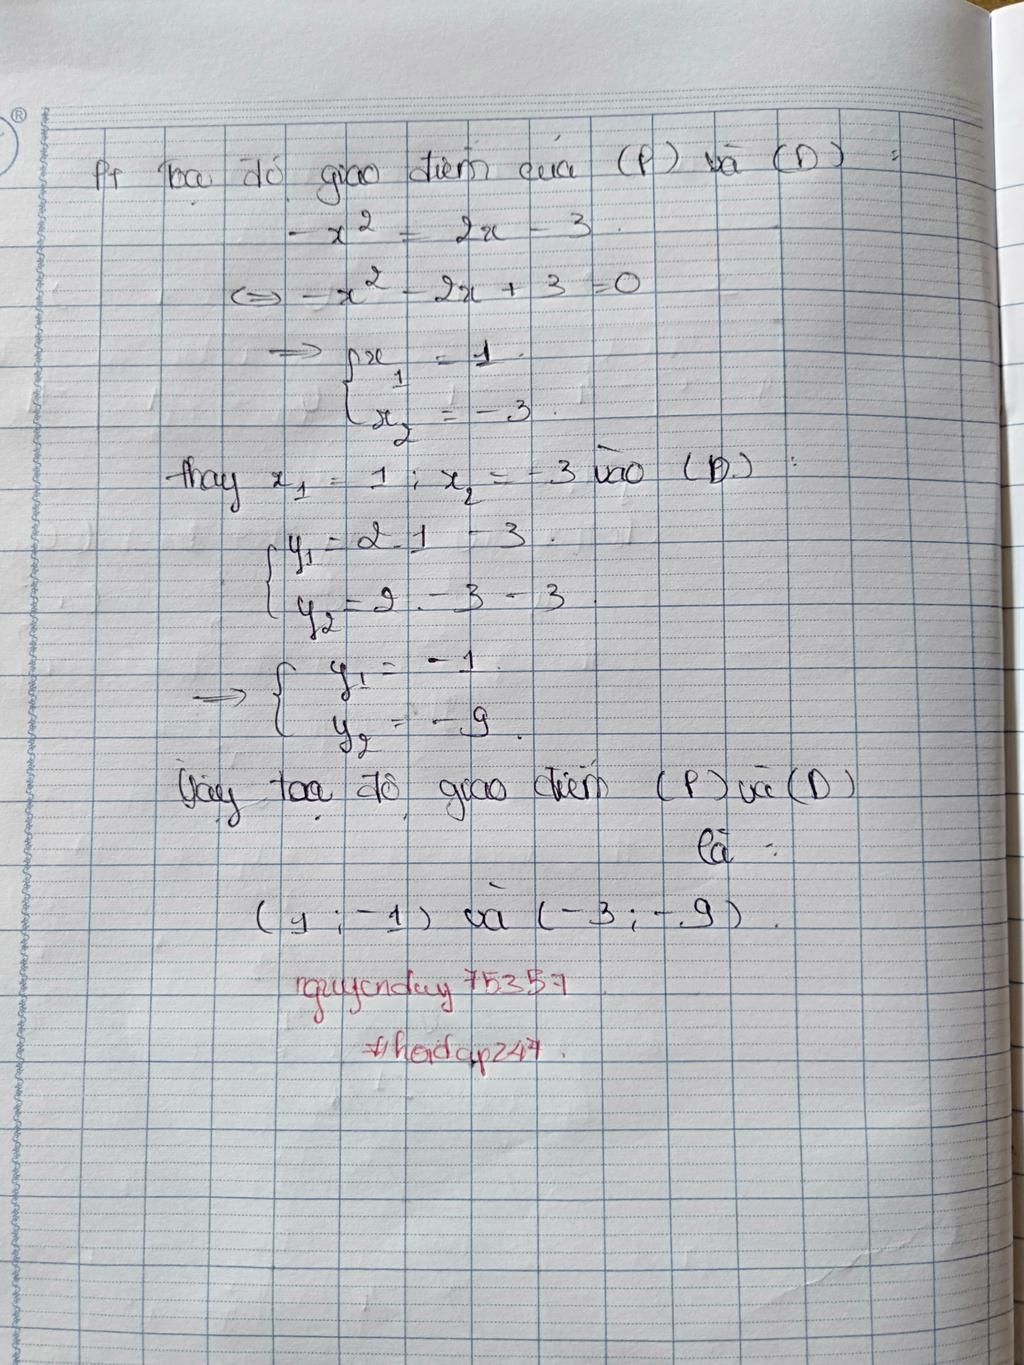 ®
Pt toạ độ giao điểm của (P) và (D) :
- x² = 2x - 3.
<=> - x² - 2x + 3 = 0
=> { x₁ = 1.
x₂ = - 3.
thay x₁ = 1 ; x₂ = - 3 vào (D) :
{ y₁ = 2.1 - 3.
y₂ = 2.-3 - 3.
=> { y₁ = - 1.
y₂ = - 9.
Vậy toạ độ giao điểm (P) và (D)
là :
(1 ; -1) và (-3 ; -9).
nguyenduy75357
#hoidap247.